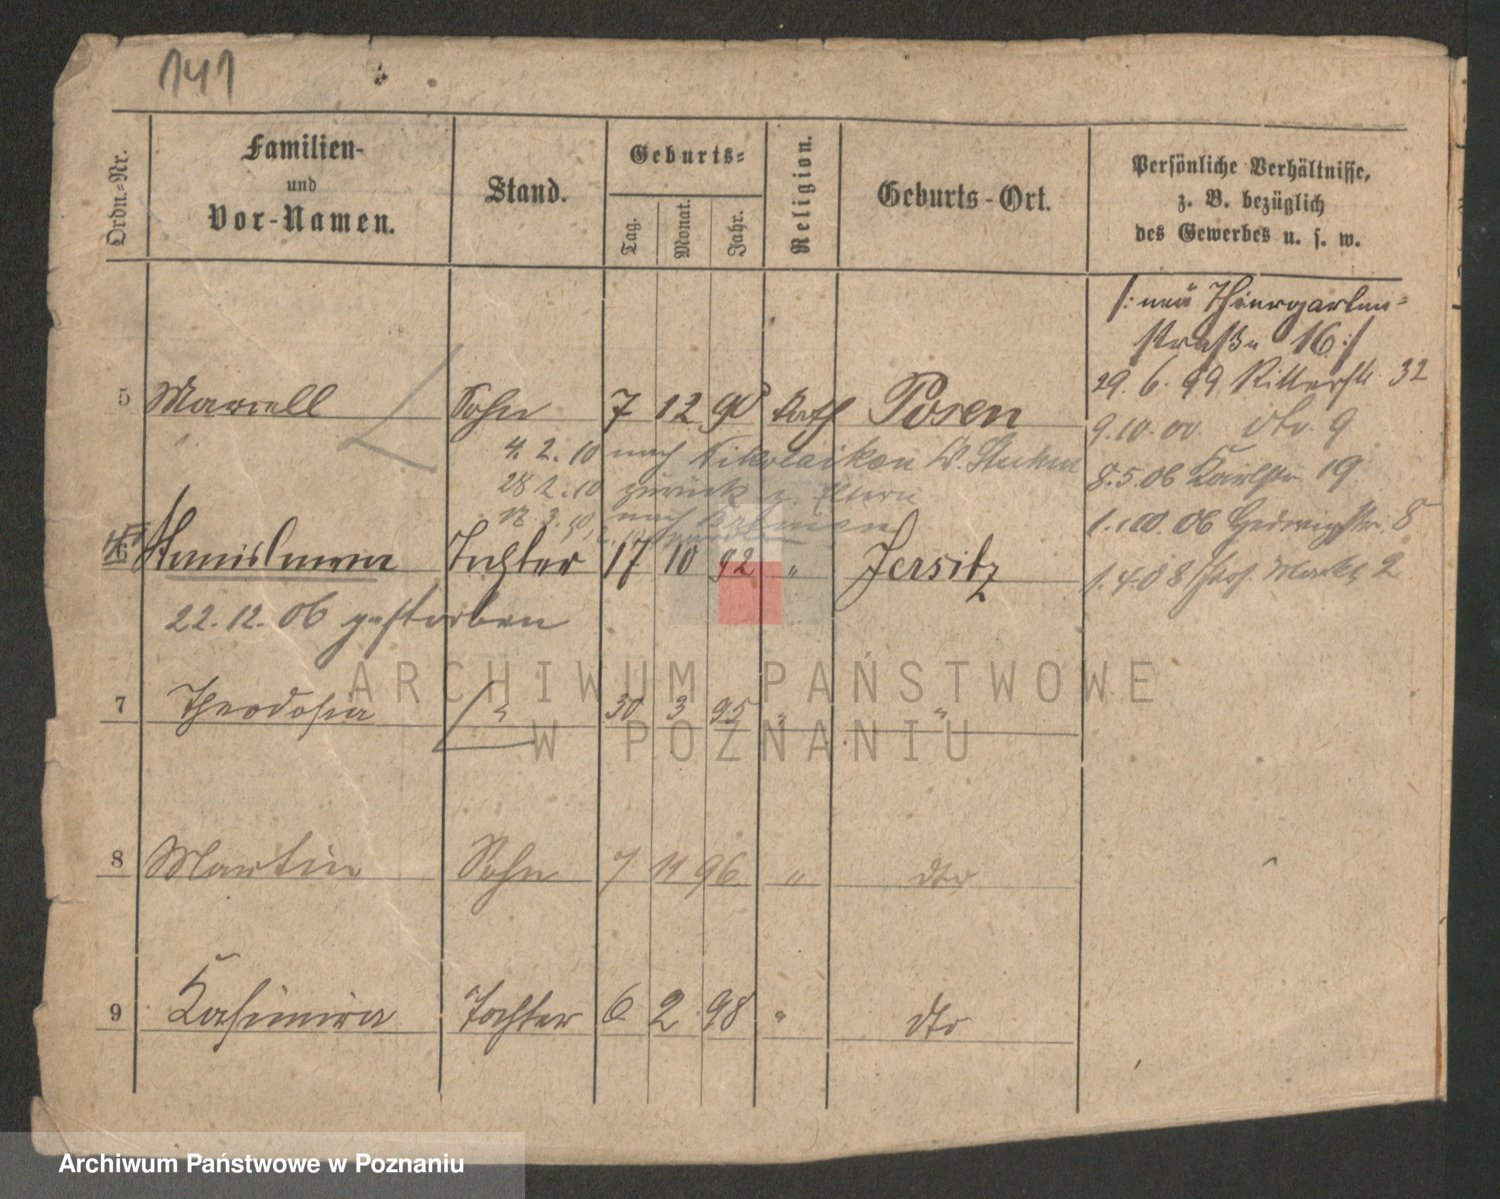 141
Ordn.-Nr.
Familien-
und
Vor-Namen.
Stand.
Geburts-
Tag.
Monat.
Jahr.
Religion.
Geburts-Ort.
Persönliche Verhältnisse,
z. B. bezüglich
des Gewerbes u. s. w.
/: neue Thiergarten=
straße 16 :/
29. 6. 99 Ritterstr 32
5 Marcell Sohn 7 12 90 kath Posen
9. 10. 00 dto. 9
4. 2. 10 nach Nikolaiken W.
8. 5. 06 Karlstr. 19
28 2. 10 zurück z. Eltern
12. 3. 10 nach Bremen
06 Hedwigstr. 8
6 Stanislawa Tochter 17 10 92 " Jersitz
1. 4. 08 Markt 2
22. 12. 06 gestorben
7 Theodosia " 30 3 95 " "
8 Martin Sohn 7 11 96 " dto
9 Kasimira Tochter 6 2 98 " dto
ARCHIWUM PAŃSTWOWE
W POZNANIU
Archiwum Państwowe w Poznaniu